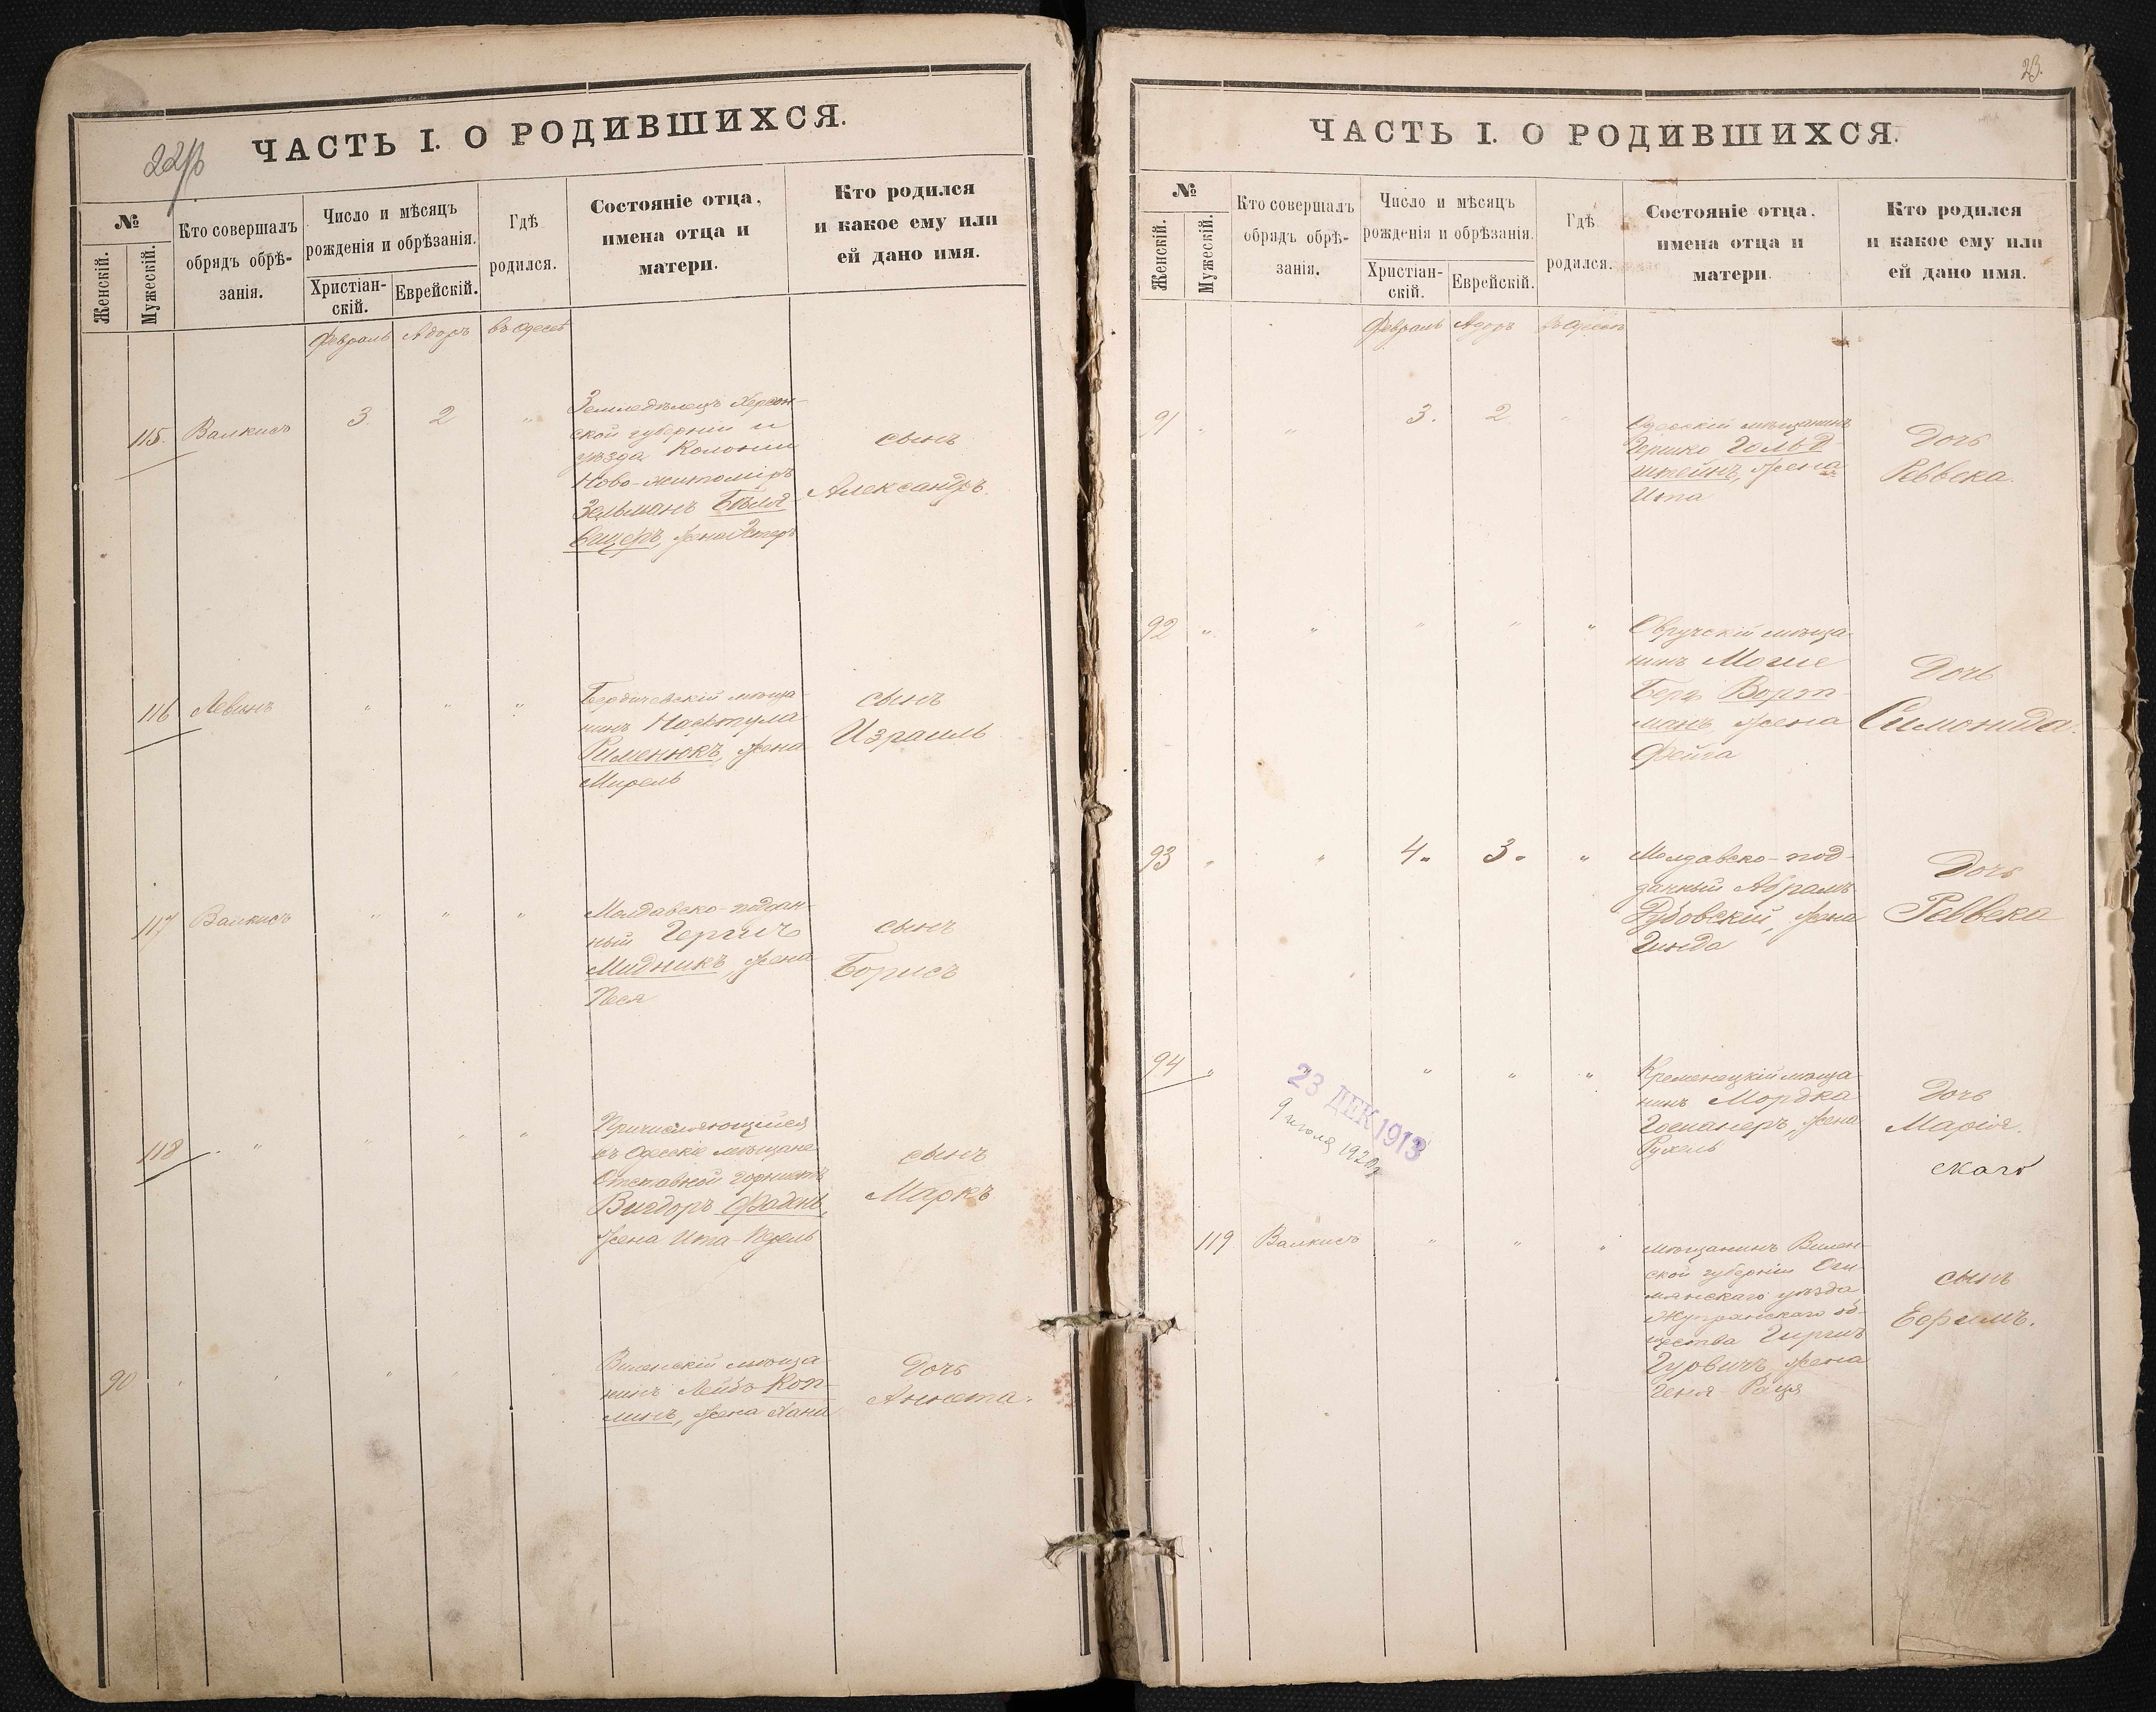 22/об
ЧАСТЬ I. О РОДИВШИХСЯ.
№
Женскій.
Мужескій.
Кто совершалъ
обрядъ обрѣ-
занія.
Число и мѣсяцъ
рожденія и обрѣзанія.
Христіан-
скій.
Еврейскій.
Гдѣ
родился.
Состояніе отца,
имена отца и
матери.
Кто родился
и какое ему или
ей дано имя.
Февраль Адоръ въ Одессѣ
115. Валкисъ 3. 2 "
Земледѣлецъ Херсон-
ской губерніи и
уѣзда Колоніи
Ново-житоміръ
Зельманъ
жена Эстеръ
сынъ
Александръ.
116 Левинъ " " "
Бердичевскій мѣща-
нинъ Нафтула
Рименюкъ, жена
Мирель
сынъ
Израиль
117 Валкисъ " " "
Молдавско-поддан-
ный Гершъ
Мидникъ, жена
Песя
сынъ
Борисъ
118 " " " "
Причисляющійся
въ Одесскіе мѣщане
Отставной горнистъ
Вигдоръ Фадынь,
жена Ита-Перль
сынъ
Маркъ
90 " " " " "
Виленскій мѣща-
нинъ Лейбъ Коп-
линъ, жена Хана
Дочь
Аннета.
23.
ЧАСТЬ I. О РОДИВШИХСЯ.
№
Женскій.
Мужескій.
Кто совершалъ
обрядъ обрѣ-
занія.
Число и мѣсяцъ
рожденія и обрѣзанія.
Христіан-
скій.
Еврейскій.
Гдѣ
родился.
Состояніе отца,
имена отца и
матери.
Кто родился
и какое ему или
ей дано имя.
Февраль Адоръ въ Одессѣ
91 " " 3. 2 "
Одесскій мѣщанинъ
Гершко Гольд-
штейнъ, жена
Ита
Дочь
Реввека.
92 " " " " "
Овручскій мѣща-
нинъ Мошѣ
Беръ Ворт-
манъ, жена
Фейга
Дочь
Симонида.
93 " " 4. 3. "
Молдавско-под-
данный Абрамъ
Дубовскій, жена
Гинда
Дочь
Реввека
94 " " " " "
23 ДЕК 1913
9 июля 1920г
Кременецкій мѣща-
нинъ Мордка
жена
Рухель
Дочь
Марія.
скаго
119 Валкисъ " " "
мѣщанинъ Вилен-
ской губерніи Ош-
мянскаго уѣзда
Жупранскаго об-
щества Гиршъ
Гуровичъ, жена
Геня-Раця
сынъ
Ефимъ.